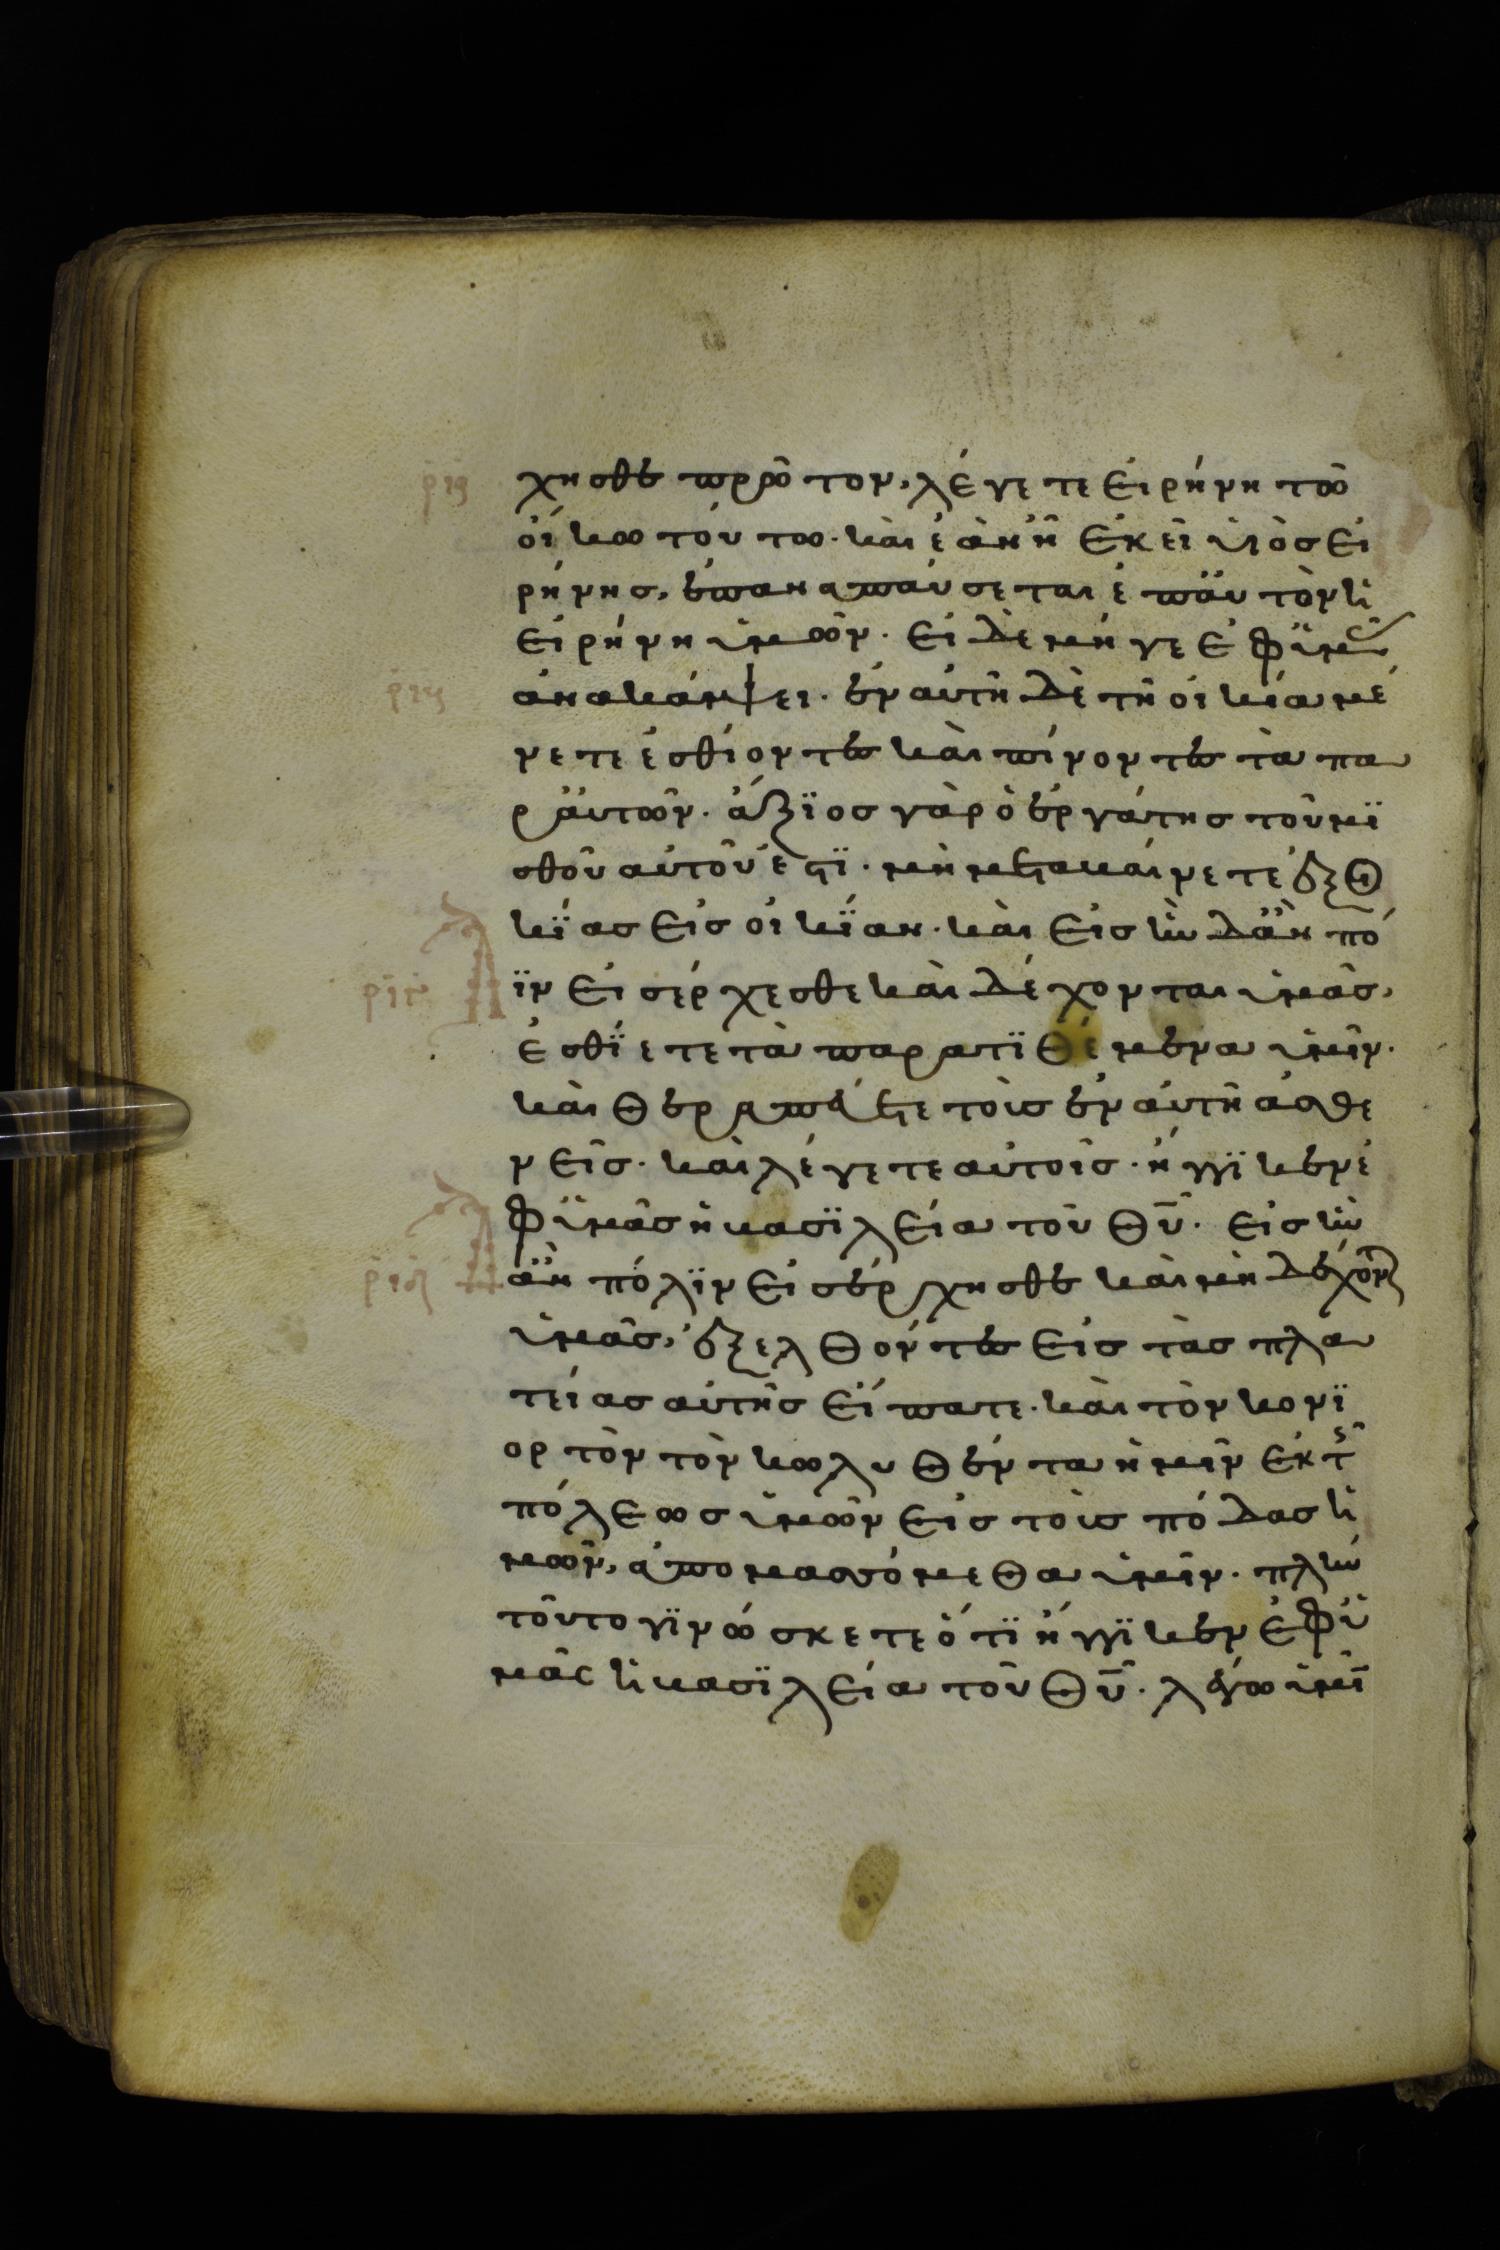 χησθε πρῶτον, λέγετε εἰρήνη τῶ
οἴκω τούτω. καὶ ἐὰν ῆ ἐκεῖ ϋἱὸσ εἰ
ρήνησ, ἐπαναπαύσεται ἐπ᾽ αυτὸν ἡ
εἰρήνη ὑμῶν. εἰ δὲ μήγε ἐφ᾽ ὑμᾶσ
ἀνακάμψει. ἐν αὐτῆ δὲ τῆ οἰκία μέ
νετε ἐσθίοντεσ καὶ πίνοντεσ τὰ πα
ρ᾽ αὐτῶν. ἄξϊοσ γὰρ ὁ ἐργάτησ τοῦ μϊ
σθοῦ αὐτοῦ ἐστϊ. μὴ μεταβαίνετε ἐξ οἰ
κΐασ εἰσ οἰκΐαν. καὶ εἰσ ἣν δ᾽ ἂν πό
ϊν εἰσέρχεσθε καὶ δέχονται ὑμᾶσ,
ἐσθΐετε τὰ παρατϊθέμενα ὑμῖν.
καὶ θεραπεύετε τοὺσ ἐν αὐτῆ ἀσθε
νεῖσ. καὶ λέγετε αὐτοῖσ. ἤγγϊκεν ἐ
φ᾽ ὑμᾶσ ἡ βασϊλεία τοῦ θυ̅. εἰσ ἣν
ἂν πόλϊν εἰσέρχησθε καὶ μὴ δέχονται
ὑμᾶσ, ἐξελθόντεσ εἰσ τὰσ πλα
τείασ αὐτῆσ εἴπατε. καὶ τὸν κονϊ
ορτὸν τὸν κωλυθέντα ἡμῖν ἐκ τῆσ
πόλεωσ ὑμῶν εἰσ τοὺσ πόδασ ἡ
μῶν, ἀπομασσόμεθα ὑμῖν. πλὴν
τοῦτο γϊνώσκετε ὅτϊ ἤγγϊκεν ἐφ᾽ ὑ
μᾶσ ἡ βασϊλεία τοῦ θυ̅. λέγω ὑμῖ̅